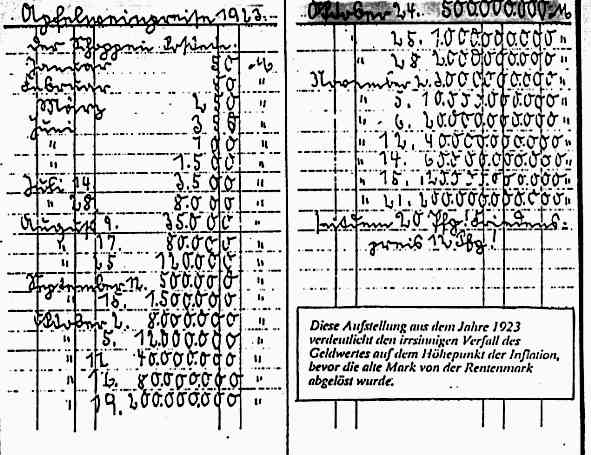 Apfelweinpreise 1923.
Der Schoppen kostete:
Januar 50 M
Februar
März 2 50 "
Juni 3 50 "
" "
" 1.500 "
Juli 14. 3.500 "
" 28. 8.000 "
August 9. 35.000 "
" 17. 80.000 "
" 25 120.000 "
September 11. 500.000 "
" 15. 1.500.000 "
Oktober 2. 8.000.000 "
" 5. 12.000.000 "
" 12. 40.000.000 "
" 16. 80.000.000 "
" 19. 200.000.000 "
Oktober 24. 500.000.000.- M
" 25. 1.000.000.000 "
" 28 2.000.000.000 "
November 2. "
" 5. "
" 6. 20.000.000.000 "
" 12. "
" 14. "
" 15. "
" 21. 200.000.000.000 "
seitdem 20 Pfg! Friedens-
preis 12 Pfg!
Diese Aufstellung aus dem Jahre 1923
verdeutlicht den irrsinnigen Verfall des
Geldwertes auf dem Höhepunkt der Inflation,
bevor die alte Mark von der Rentenmark
abgelöst wurde.